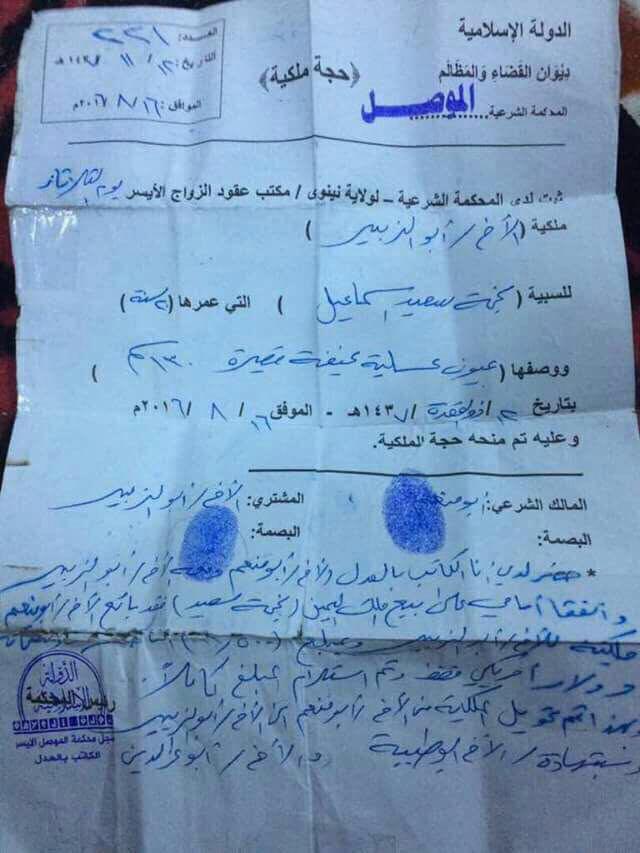 الدولة الإسلامية
ديوان القضاء والمظالم
المحكمة الشرعية الموصل
﴿حجة ملكية﴾
العدد: ٢٢١
التاريخ: ١٢/ ١١ /١٤٣٧هـ
الموافق: ١٦/ ٨ /٢٠١٦م
ثبت لدى المحكمة الشرعية - لولاية نينوى / مكتب عقود الزواج الأيسر يوم الثلاثاء
ملكية (الأخ / أبو الزبير)
للسبية (نجمة سعيد اسماعيل) التي عمرها (٢٠ سنة)
ووصفها (عيون عسلية نحيفة قصيرة ١٣٠ سم)
بتاريخ ١٢/ ذو القعدة /١٤٣٧هـ - الموافق ١٦/ ٨ /٢٠١٦م
وعليه تم منحه حجة الملكية.
المالك الشرعي: أبو منعم المشتري: الأخ / أبو الزبير
البصمة: البصمة:
* حضر لدي أنا الكاتب بالعدل الأخ / أبو منعم ومعه أخ / أبو الزبير
واتفقا أمامي على بيع ملك اليمين (نجمة سعيد) فقد بائع الأخ / أبو منعم
ملكيته للأخ / أبو الزبير وبمبلغ
دولار أمريكي فقط وتم استلام المبلغ كاملاً.
وبهذا تم تحويل الملكية من الأخ / أبو منعم الى الأخ / أبو الزبير
وبشهادة / الأخ والأخ / أبو عز الدين
الدولة الإسلامية
سجل محكمة الموصل الأيسر
الكاتب بالعدل